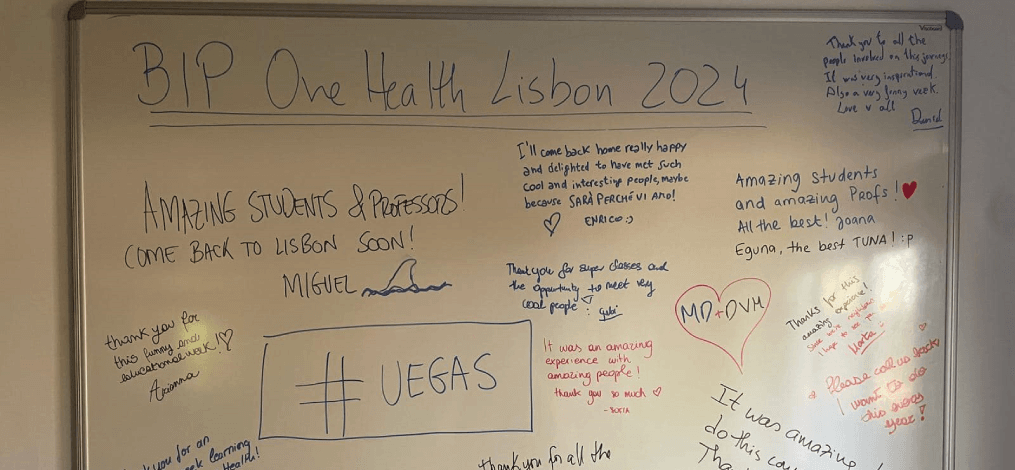 BIP One Health Lisbon 2024
Thank you to all the
people involved on this journey.
It was very inspirational.
Also a very funny week.
Love u all
Daniel
I'll come back home really happy
and delighted to have met such
cool and interesting people, maybe
because SARÀ PERCHÉ VI AMO!
ENRICO :)
Amazing Students
and amazing Profs! ♥
All the best! Joana
Eguna, the best TUNA! :p
AMAZING STUDENTS & PROFESSORS!
COME BACK TO LISBON SOON!
MIGUEL
Thank you for super classes and
the opportunity to meet very
cool people
MD+DVM
Thanks for this
amazing experience!
thank you for
this funny and
educational week! ♡
Arianna
# UEGAS
It was an amazing
experience with
amazing people!
thank you so much ♡
Please call us back
I want to do
this every
year!
It was amazing
do this
for an
learning
Health!
thank you for all the